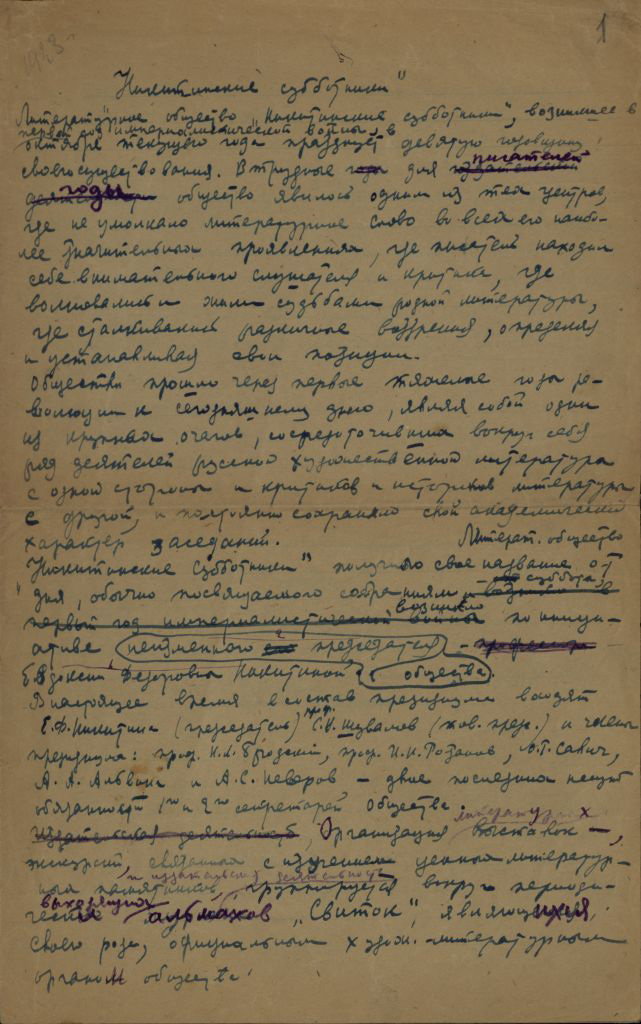 1923
1
„Никитинские субботники"
Литературное общество „Никитинские субботники", возникшее в
первый год империалистической войны, в
октябре текущего года празднует девятую годовщину
своего существования. В трудные для писателей
годы общество явилось одним из тех центров,
где не умолкало литературное слово во всех его наибо-
лее значительных проявлениях, где писатель находил
себе внимательного слушателя и критика, где
волновались и жили судьбами родной литературы,
где сталкивались различные воззрения, определяя
и устанавливая свои позиции.
Общество прошло через первые тяжелые годы ре-
волюции к сегодняшнему дню, являя собой один
из крупных очагов, сосредоточивших вокруг себя
ряд деятелей русской художественной литературы
с одной стороны и критиков и историков литературы
с другой, и постоянно сохраняло свой академический
характер заседаний. Литерат. общество
„Никитинские субботники" получило свое название от
дня, обычно посвящаемого собраниям, – суббота,
первый год империалистической войны возникло по иници-
ативе неизменного председателя – профессора
Евдоксии Федоровны Никитиной общества.
В настоящее время в состав президиума входят
Е.Ф. Никитина (председатель) проф. С.К. Шувалов (тов. предс.) и члены
президиума: проф. Н.Л. Бродский, проф. И.Н. Розанов, О.Г. Савич,
А.Я. Альвинг и А.С. Неверов – двое последних несут
обязанности 1го и 2го секретарей общества.
литературных
издательская деятельность, Организация выставок –,
экскурсий, связанных с изучением ценных литератур-
и издательская деятельность
ных памятников, группируется вокруг периоди-
чески выходящих альмахов „Свиток", являющихся,
своего рода, официальным худож.-литературным
органом общества.